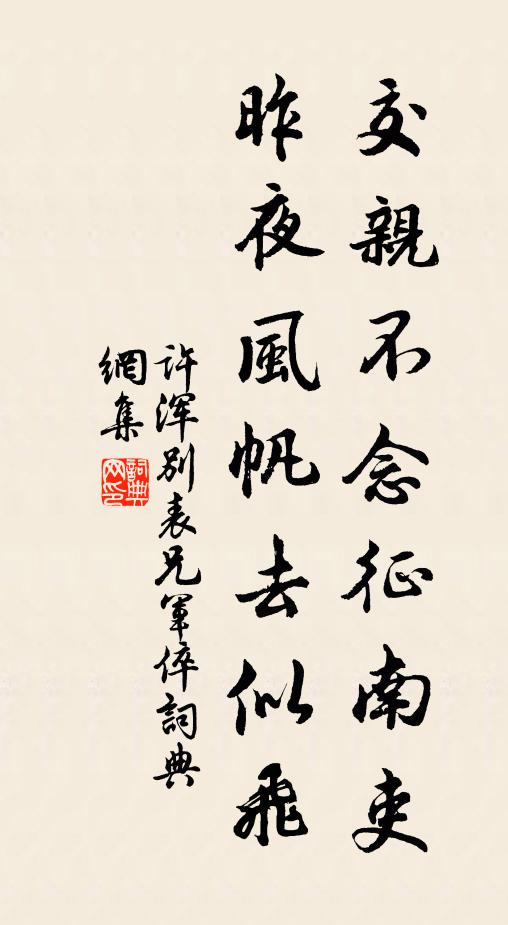 交親不念征南吏
昨夜風帆去似飛
许渾别表兄軍倅詞典
網集
詞典网印